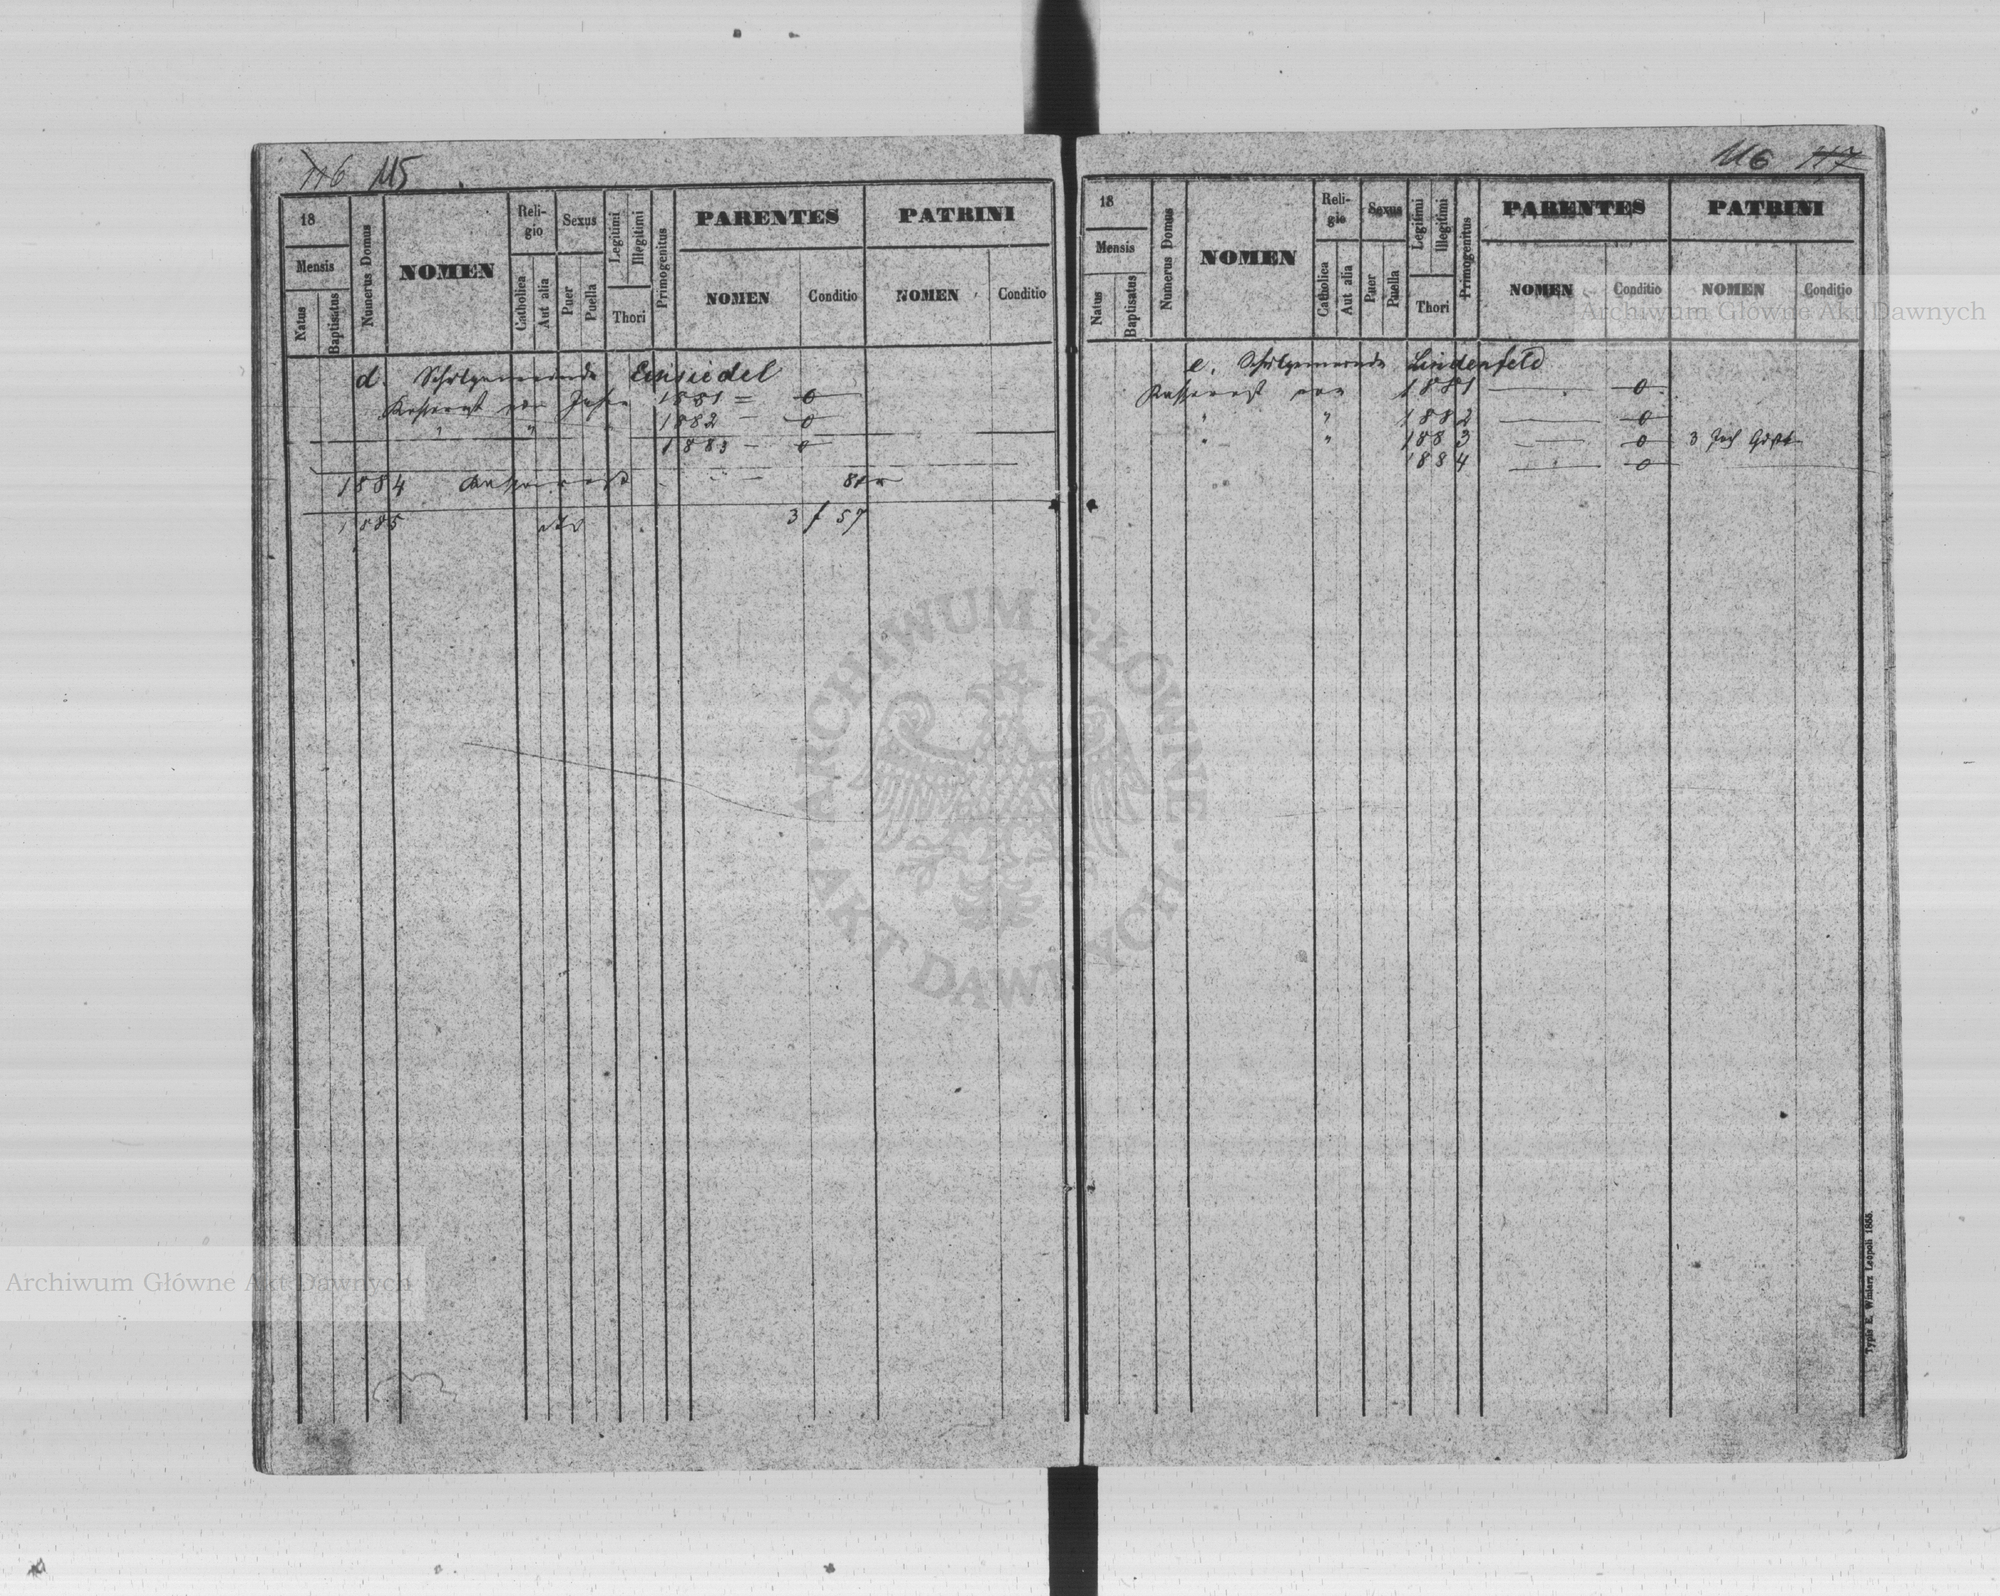 116 115
18
Mensis
Natus
Baptisatus
Numerus Domus
NOMEN
Religio
Catholica
Aut alia
Sexus
Puer
Puella
Legitimi
Illegitimi
Thori
Primogenitus
PARENTES
NOMEN
Conditio
PATRINI
NOMEN
Conditio
d. Schulgemeinde Einsiedel
Kassarest von Jahre 1881 = 0
" " 1882 — 0
1883 — 0
1884 Kassarest — 80
1885 3 f 57
116 117
18
Mensis
Natus
Baptisatus
Numerus Domus
NOMEN
Religio
Catholica
Aut alia
Sexus
Puer
Puella
Legitimi
Illegitimi
Thori
Primogenitus
PARENTES
NOMEN
Conditio
PATRINI
NOMEN
Conditio
e. Schulgemeinde Lindenfeld
Kassarest von 1881 — 0
" " 1882 — 0
" " 1883 — 0 3
1884 — 0
Typis E. Winiarz Leopoli 1855.
Archiwum Główne Akt Dawnych
ARCHIWUM GŁÓWNE · AKT DAWNYCH ·
Archiwum Główne Akt Dawnych